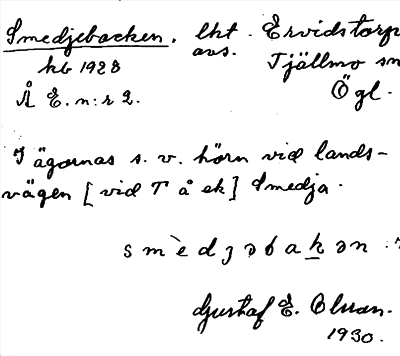 Smedjebacken. lht. Ervidstorp
avs.
hb 1928 Tjällmo sn
Å E. n:r 2. Ögl.
I ägornas s. v. hörn vid lands-
vägen [vid T å ek] Smedja.
Gustaf E. Olsson.
1930.